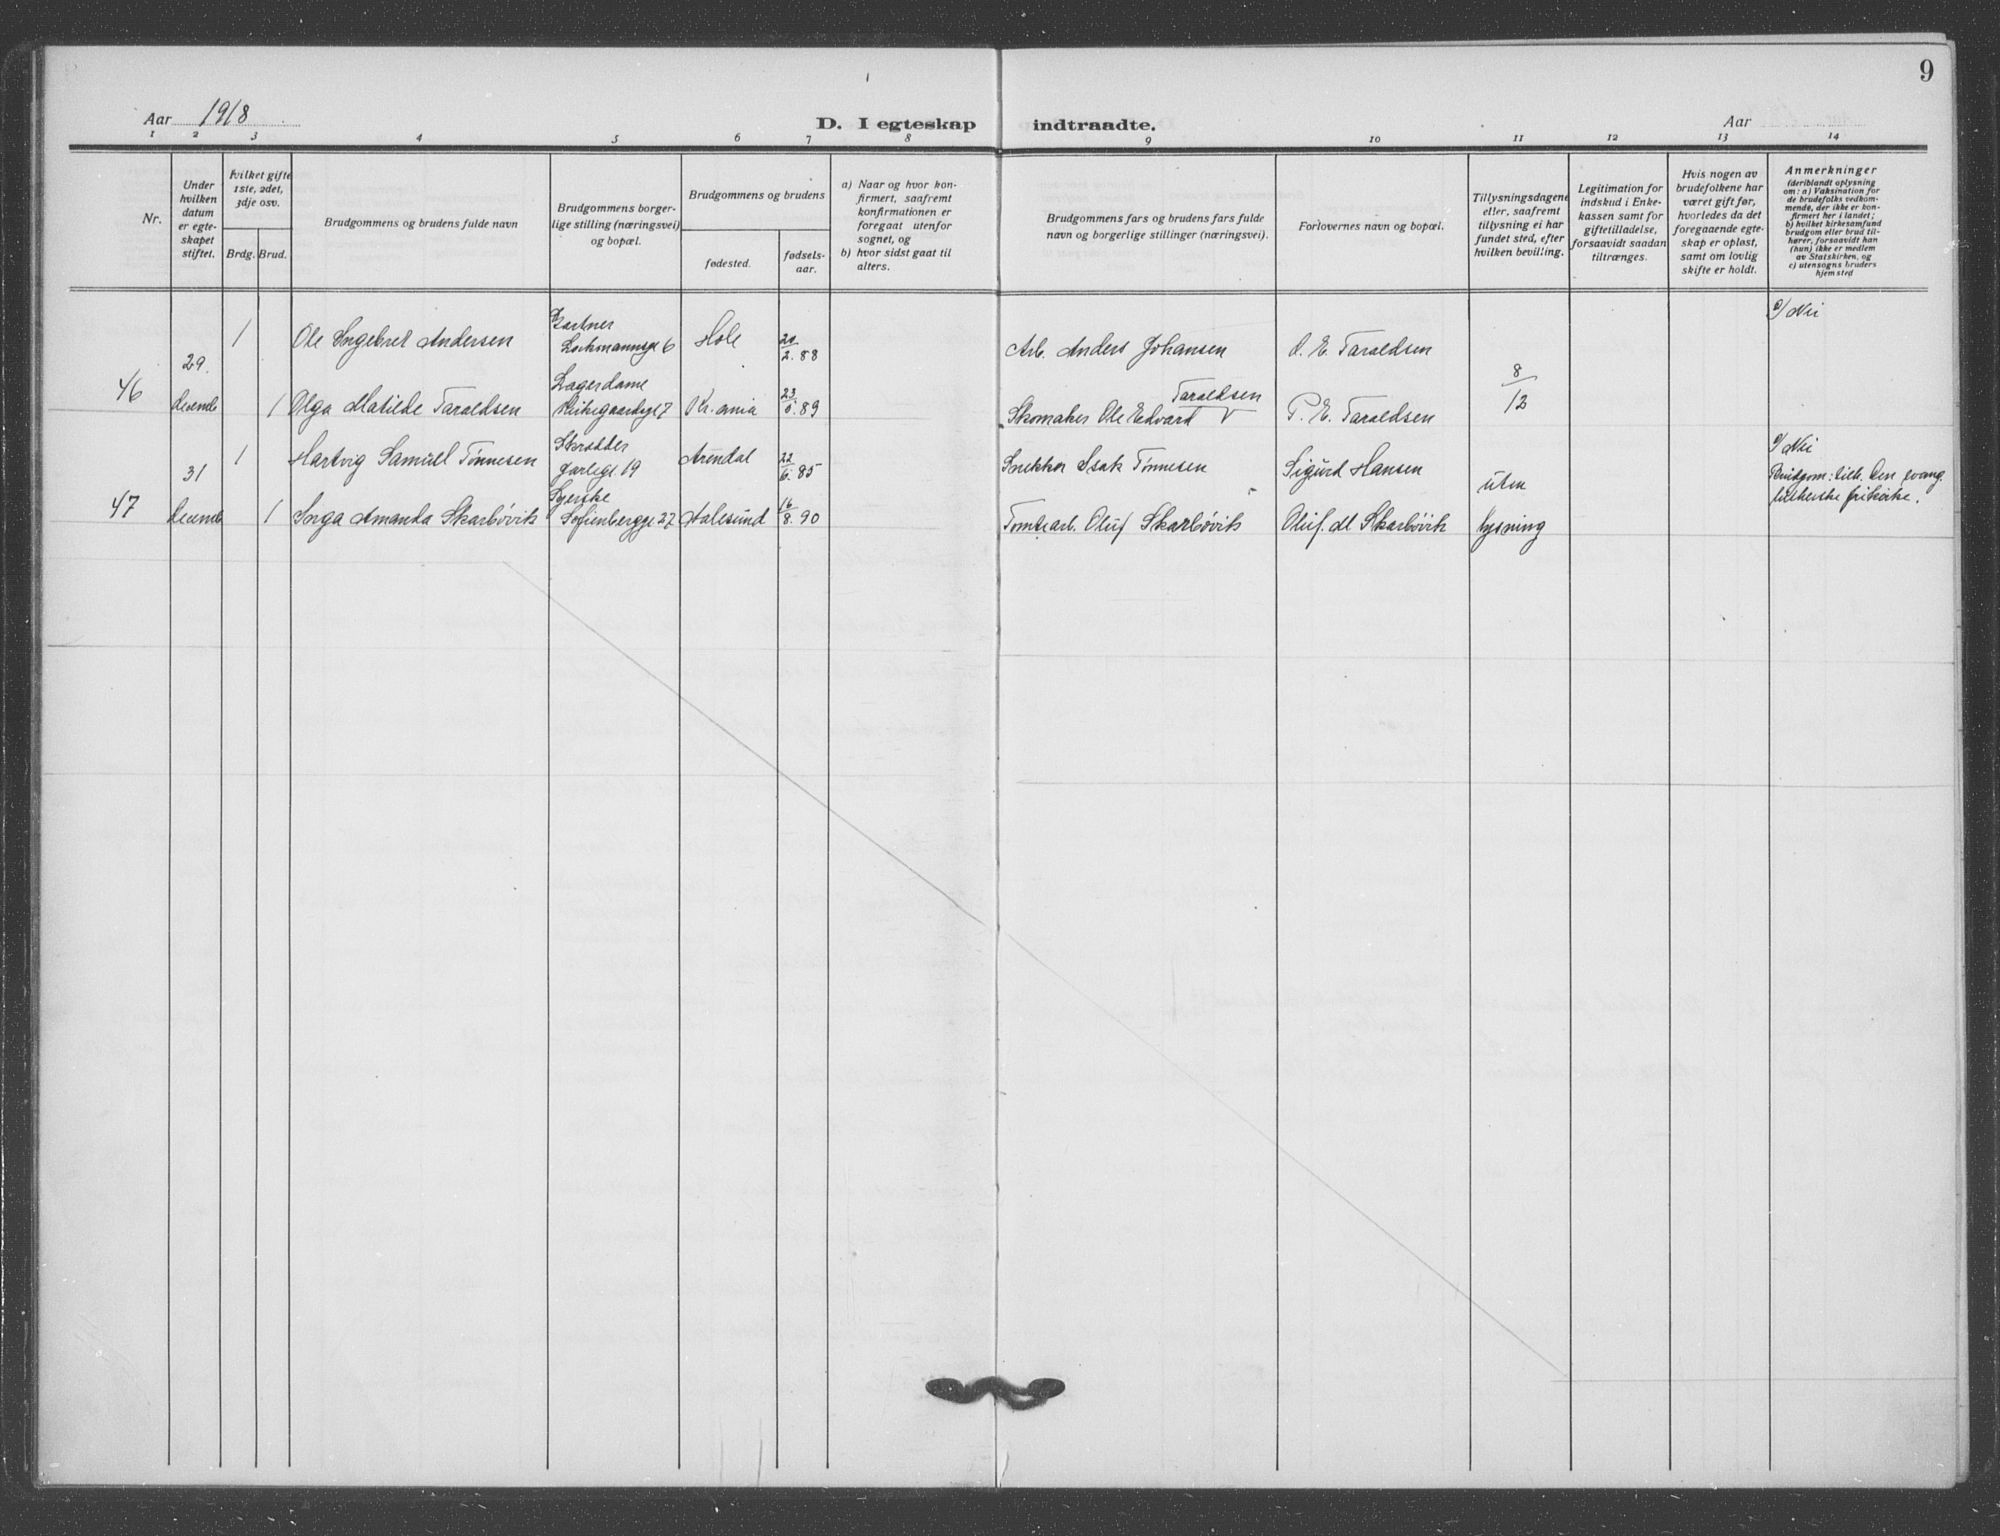 9
Aar 1918
D. I egteskap indtraadte.
Aar
1 2 3 4 5 6 7 8 9 10 11 12 13 14
Nr.
Under
hvilken
datum
er egte-
skapet
stiftet.
Hvilket gifte
1ste, 2det,
3dje osv.
Brdg. Brud.
Brudgommens og brudens fulde navn
Brudgommens borger-
lige stilling (næringsvei)
og bopæl.
Brudgommens og brudens
fødested.
fødsels-
aar.
a) Naar og hvor kon-
firmert, saafremt
konfirmationen er
foregaat utenfor
sognet, og
b) hvor sidst gaat til
alters.
Brudgommens fars og brudens fars fulde
navn og borgerlige stillinger (næringsvei).
Forlovernes navn og bopæl.
Tillysningsdagene
eller, saafremt
tillysning ei har
fundet sted, efter
hvilken bevilling.
Legitimation for
indskud i Enke-
kassen samt for
giftetilladelse,
forsaavidt saadan
tiltrænges.
Hvis nogen av
brudefolkene har
været gift før,
hvorledes da det
foregaaende egte-
skap er opløst,
samt om lovlig
skifte er holdt.
Anmerkninger
(deriblandt oplysning
om: a) Vaksination for
de brudefolks vedkom-
mende, der ikke er kon-
firmert her i landet;
b) hvilket kirkesamfund
brudgom eller brud til-
hører, forsaavidt han
(hun) ikke er medlem
av Statskirken, og
c) utensogns bruders
hjemsted
46
29.
decemb
1
Ole Ingebret Andersen
Gartner
6
Hole
2. 88
Arb. Anders Johansen
O. E. Taraldsen
8/12
c/ Nei
1
Olga Matilde Taraldsen
Lagerdame
Kirkegaardsgt 7
Kr.ania
23
89
Taraldsen
Skomaker Ole Edvard V
P. E. Taraldsen
47
31
decemb
1
Hartvig Samuel Tønnesen
Skrædder
Jarlegt 19
Arendal
22
6. 85
Isak Tønnesen
Sigurd Hansen
uten
lysning
c/ Nei
Brudgom: tilh. Den evang.
lutherske frikirke.
1
Inga Amanda Skarbøvik
Syerske
Sofienberggt 27
Aalesund
16
8. 90
Tomtearb. Oluf Skarbøvik
Oluf. M Skarbøvik